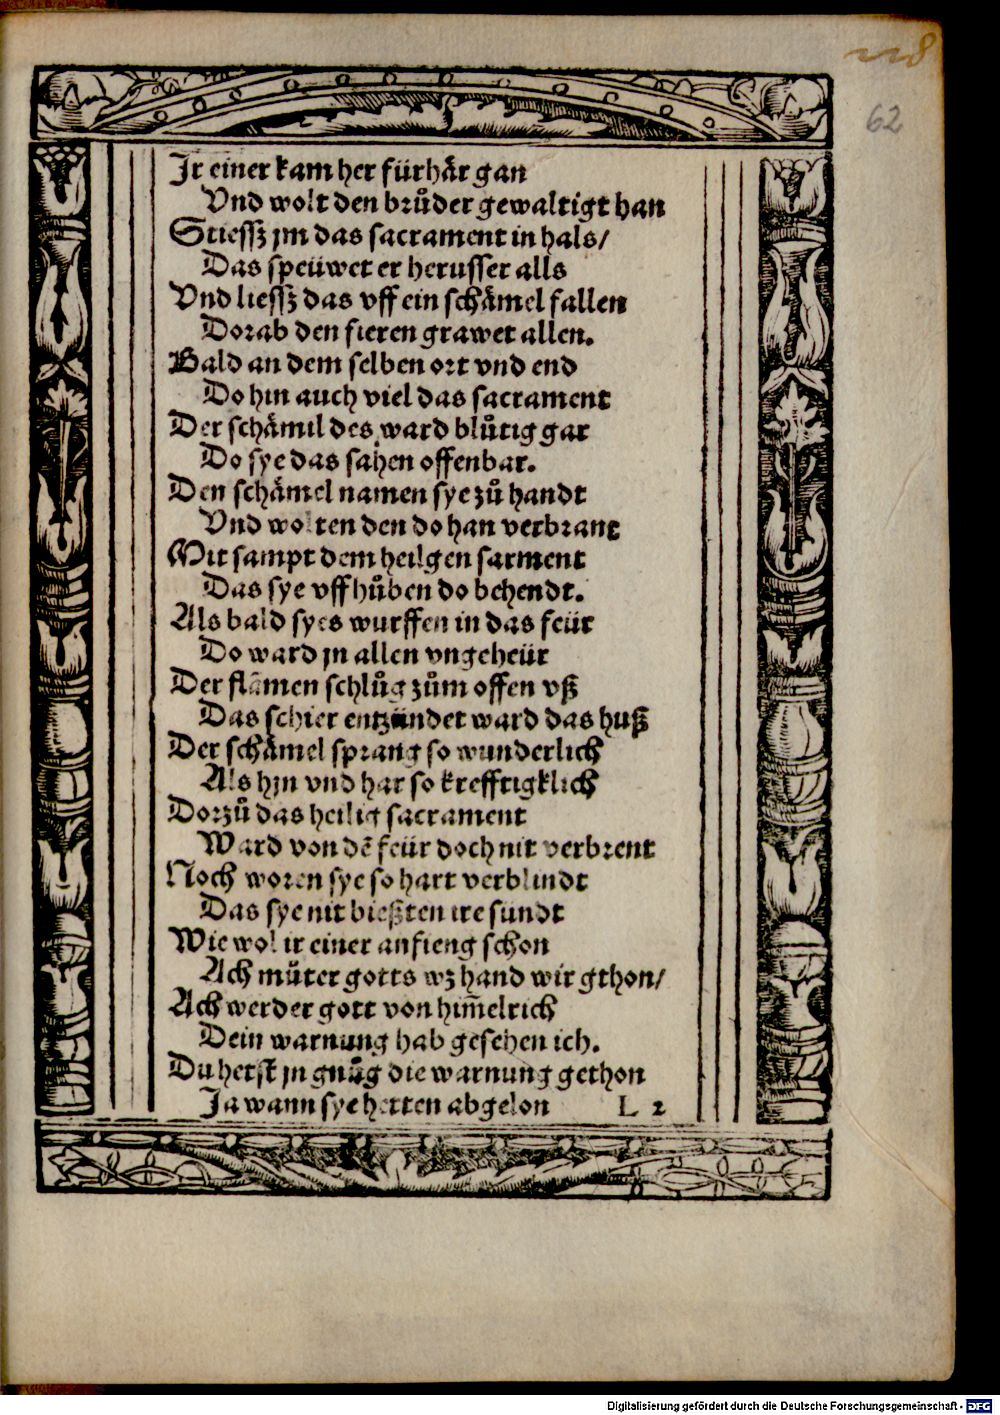 228
62
Jr einer kam her fürhår gan
Vnd wolt den brůder gewaltigt han
Stiessz jm das sacrament in hals/
Das speüwet er herusser alls
Vnd liessz das vff ein schåmel fallen
Dorab den fieren grawet allen.
Bald an dem selben ort vnd end
Do hin auch viel das sacrament
Der schåmil des ward blůtig gar
Do sye das sahen offenbar.
Den schåmel namen sye zů handt
Vnd wolten den do han verbrant
Mit sampt dem heilgen sarment
Das sye vff hůben do behendt.
Als bald syes wurffen in das feür
Do ward jn allen vngeheür
Der flāmen schlůg zům offen vß
Das schier entzündet ward das huß
Der schåmel sprang so wunderlich
Als hjn vnd har so krefftigklich
Dorzů das heilig sacrament
Ward von dē feür doch nit verbrent
Noch woren sye so hart verblindt
Das sye nit bießten ire sundt
Wie wol ir einer anfieng schon
Ach můter gotts wz hand wir gthon/
Ach werder gott von him̄elrich
Dein warnung hab gesehen ich.
Du hetst jn gnůg die warnung gethon
Ja wann sye hetten abgelon L 2
Digitalisierung gefördert durch die Deutsche Forschungsgemeinschaft - DFG